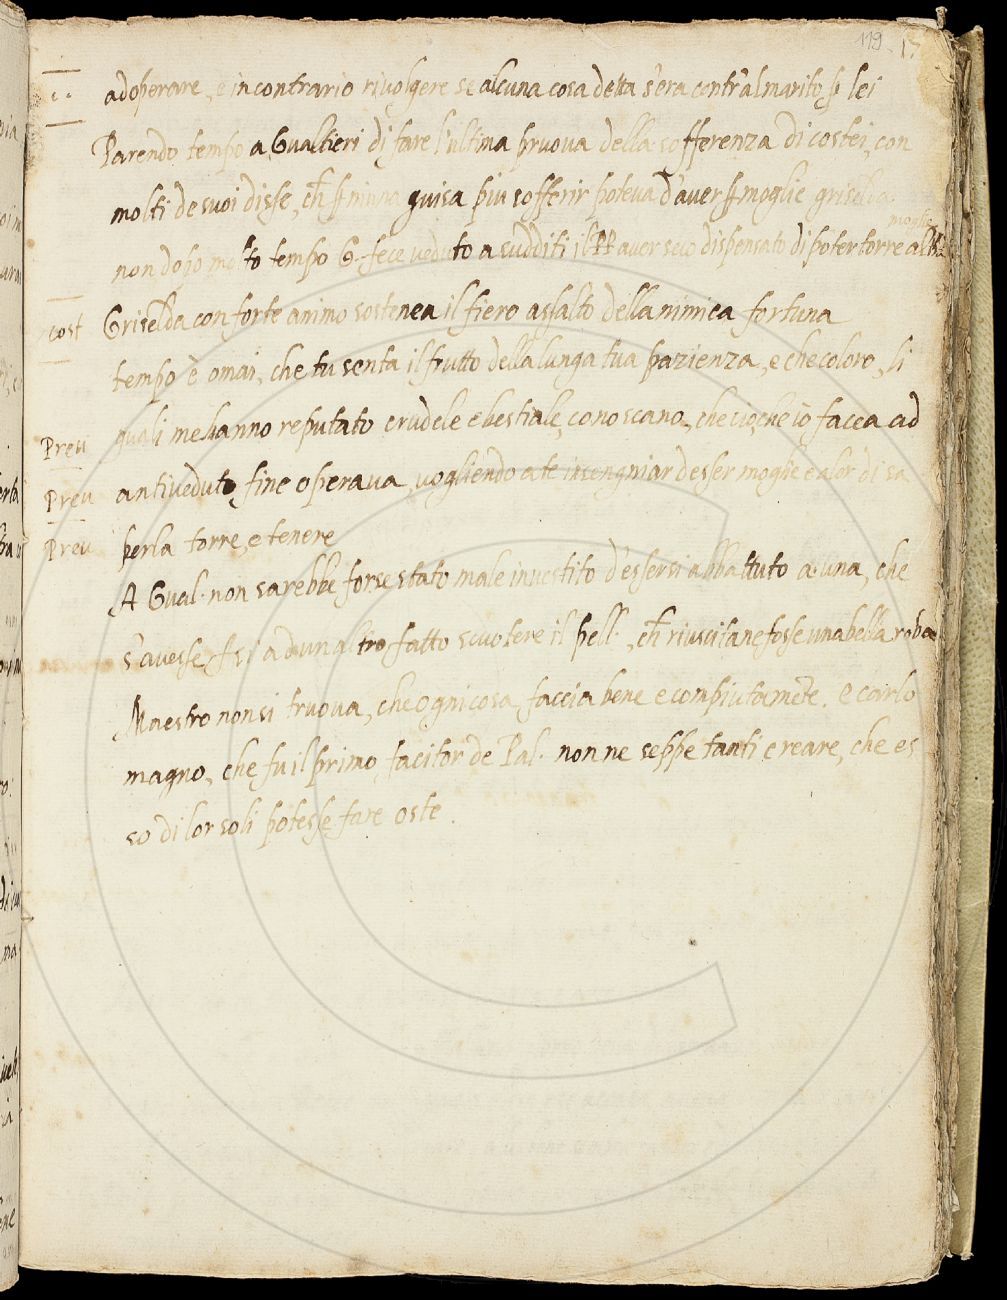 119 17
adoperare, e in contrario rivolgere se alcuna cosa detta s'era contr'al marito p lei
Parendo tempo a Gualtieri di fare l'ultima pruova della sofferenza di costei, con
molti de suoi disse, ch p niuna guisa piu sofferir poteva d'aver p moglie griselda.
moglie
non dopo molto tempo G. fece veduto a sudditi il PP aver seco dispensato di poter torre
cost Griselda con forte animo sostenea il fiero assalto della nimica fortuna
tempo è omai, che tu senta il frutto della lunga tua pazienza, e che coloro, li
Prevì quali me hanno reputato crudele e bestiale, conoscano, che ciò, che io facea ad
Prev antiveduto fine operava vogliendo a te insengniar d'esser moglie e a lor di sa
Prev perla torre, e tenere
A Gual. non sarebbe forse stato male investito d'essersi abbattuto a una, che
s'avesse sì ad un altro fatto scuotere il pell., ch riuscitane fosse una bella roba
Maestro non si truova, che ogni cosa faccia bene e compiutamēte. e carlo
magno, che fu il primo facitor de Pal. non ne seppe tanti creare, che es
so di lor soli potesse fare oste.